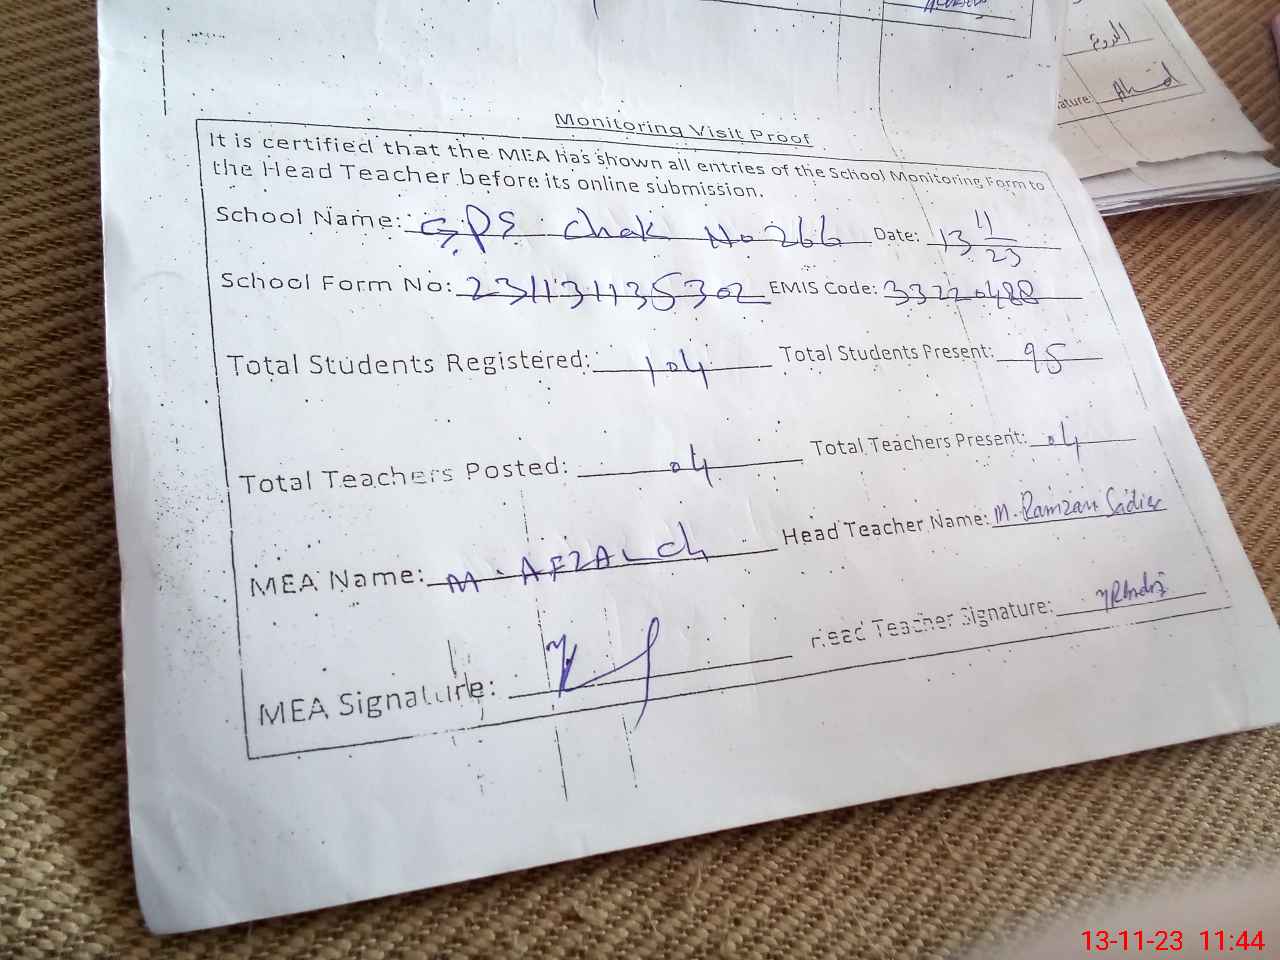 Monitoring Visit Proof
It is certified that the MEA has shown all entries of the School Monitoring Form to
the Head Teacher before its online submission.
School Name: GPS Chak No 266 Date: 13 11/23
School Form No: 231131135302 EMIS Code: 33220488
Total Students Registered: 104 Total Students Present: 95
Total Teachers Posted: 04 Total Teachers Present: 04
MEA Name: M. AFZAL Ch Head Teacher Name: M. Ramzan
MEA Signature: Head Teacher Signature:
ature:
13-11-23 11:44